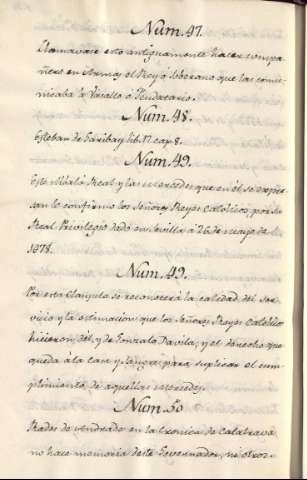 Num. 47.
Llamavase esto antiguamente hacer compa-
ñero en Armas el Rey o soberano que las comu-
nicaba la Vasallo o Feudatario.
Num. 48.
Esteban de Garibay lib. 17. cap. 8.
Num. 49.
Este Alvalá Real, y las mercedes que en él se expre-
san lo confirmo los Señores Reyes Catolicos por su
Real Privilegio dado en Sevilla à 26 de mayo de
1478.
Num. 49.
Por esta Clausula se reconocerá la calidad del ser-
vicio y la estimacion que los Señores Reyes Catolico
hicieron del, y de Gonzalo Davila, y el derecho que
queda à la Casa y Sangre para suplicar el cum-
plimiento de aquellas mercedes.
Num. 50
Rades de Andrada en la Cronica de Calatrava
no hace memoria deste Governador, ni otros-